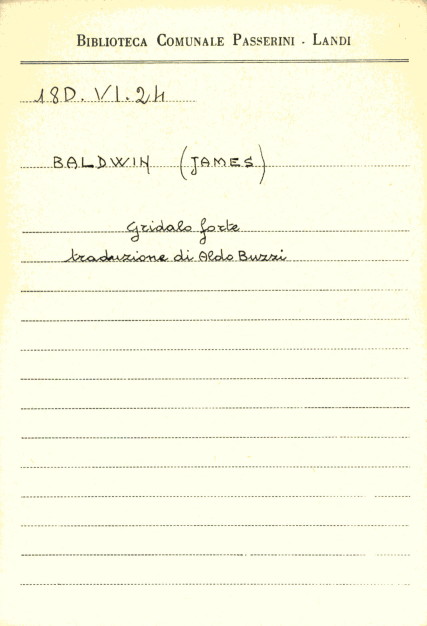 BIBLIOTECA COMUNALE PASSERINI - LANDI
18D. VI. 24
BALDWIN (JAMES)
Gridalo forte
traduzione di Aldo Buzzi